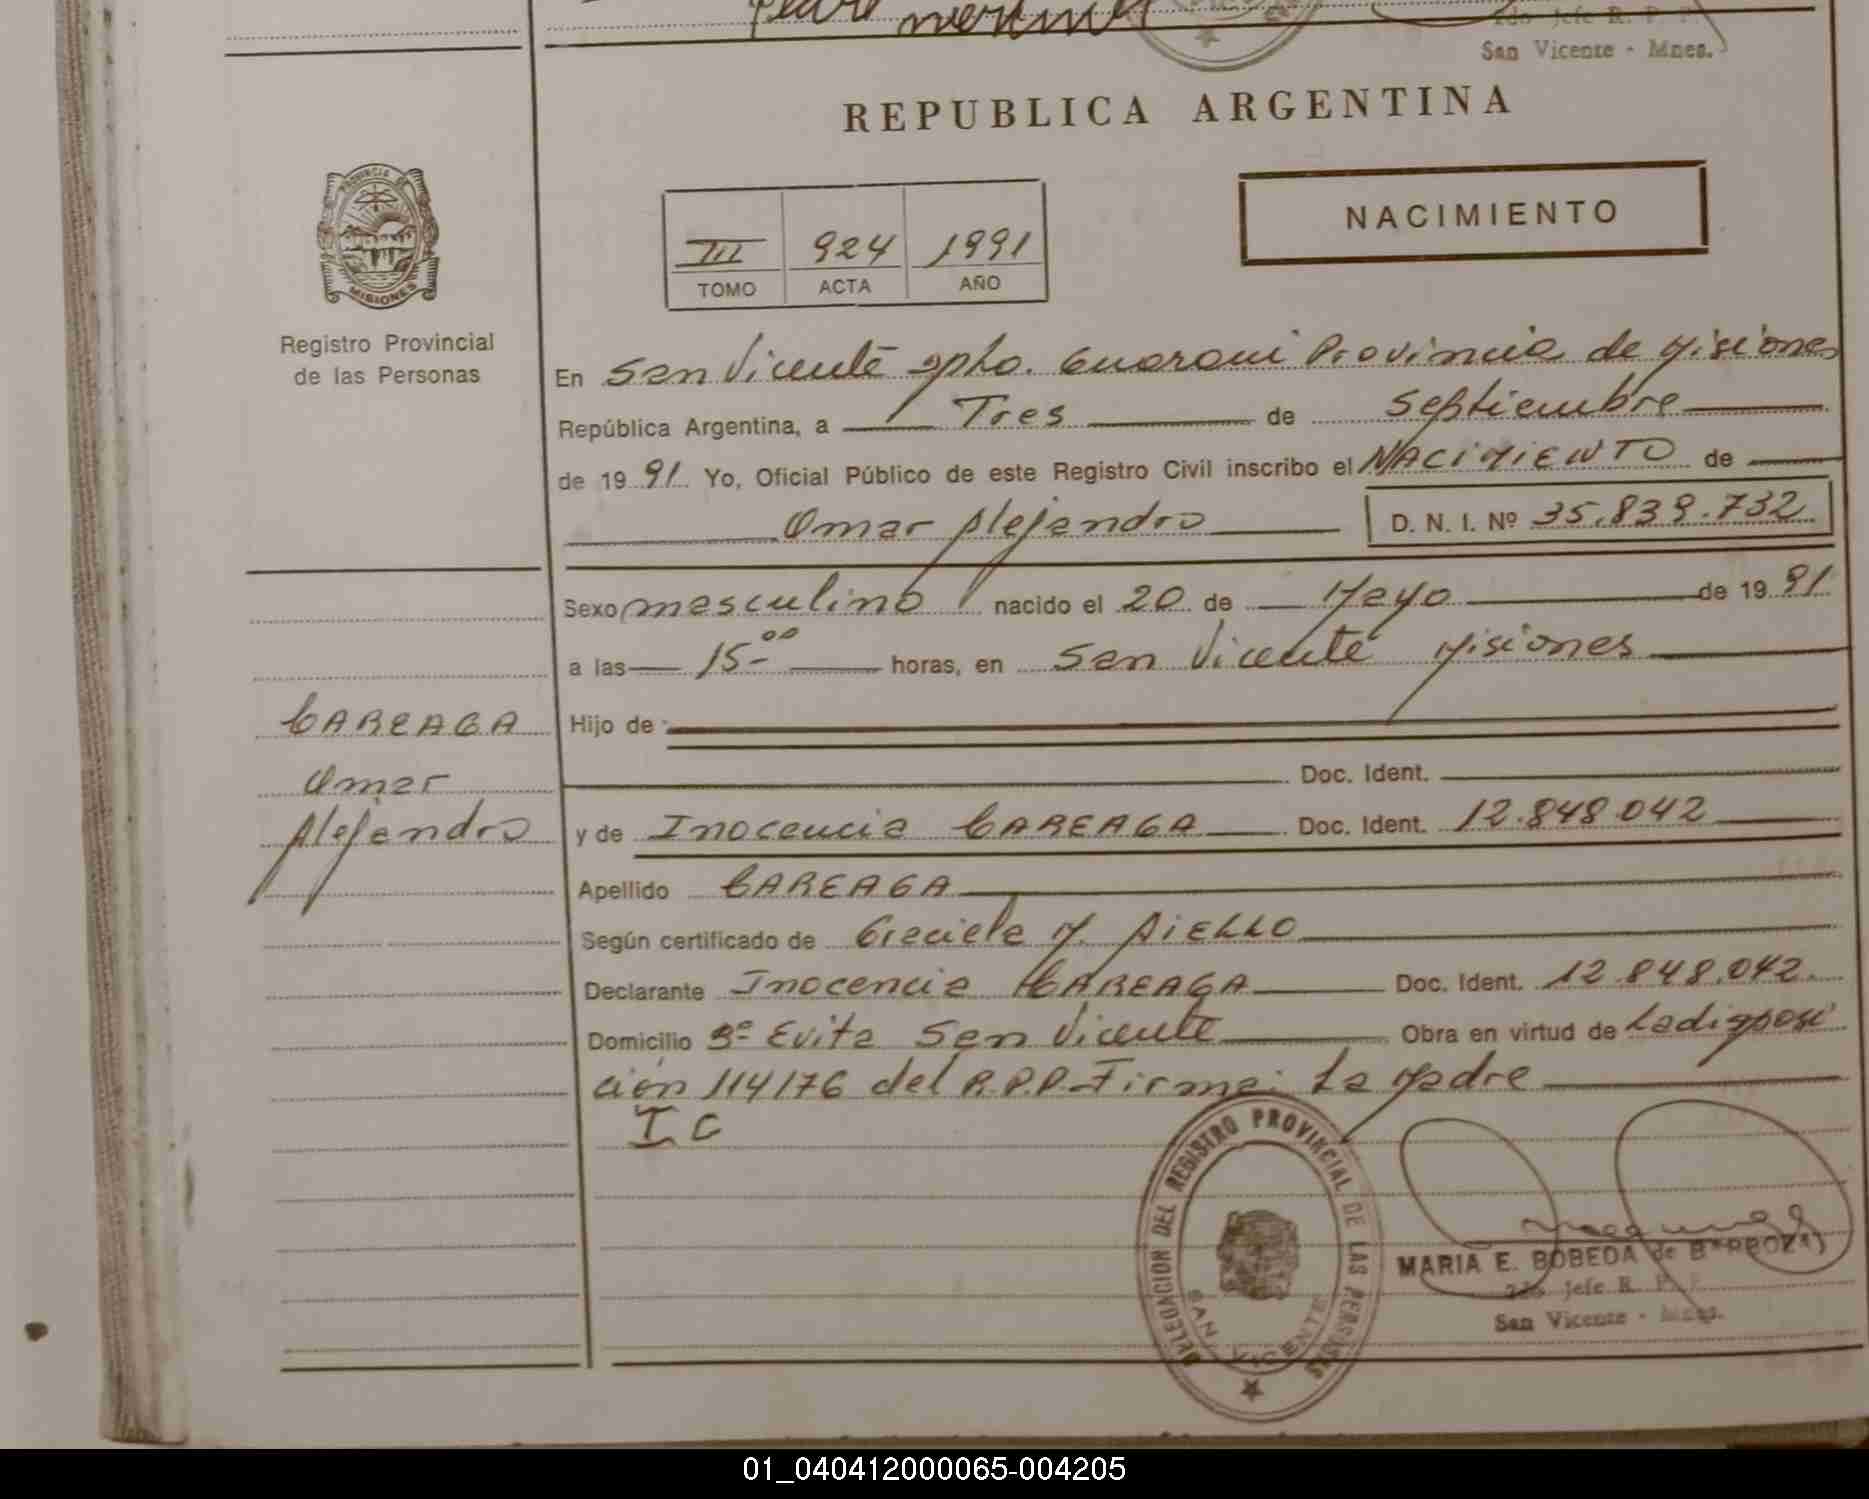 San Vicente - Mnes.
REPUBLICA ARGENTINA
PROVINCIA DE
MISIONES
Registro Provincial
de las Personas
III 924 1991
TOMO ACTA AÑO
NACIMIENTO
En San Vicente Dpto. Guarani Provincia de Misiones
República Argentina, a Tres de Septiembre
de 1991 Yo, Oficial Público de este Registro Civil inscribo el NACIMIENTO de
Omar Alejandro D. N. I. Nº 35.839.732
Sexo masculino nacido el 20 de Mayo de 1991
a las 15-00 horas, en San Vicente Misiones
CAREAGA
Omar
Alejandro
Hijo de
Doc. Ident.
y de Inocencia CAREAGA Doc. Ident. 12.848.042
Apellido CAREAGA
Según certificado de Graciela M. AiELLO
Declarante Inocencia CAREAGA Doc. Ident. 12.848.042
Domicilio Bº Evita San Vicente Obra en virtud de La disposi
ción 114/76 del R.P.P. Firma: La Madre
I C
DELEGACION DEL REGISTRO PROVINCIAL DE LAS PERSONAS
SAN VICENTE
MARIA E. BOBEDA de BARBOZA
2do Jefe R. P. P.
San Vicente - Mnes.
01_040412000065-004205